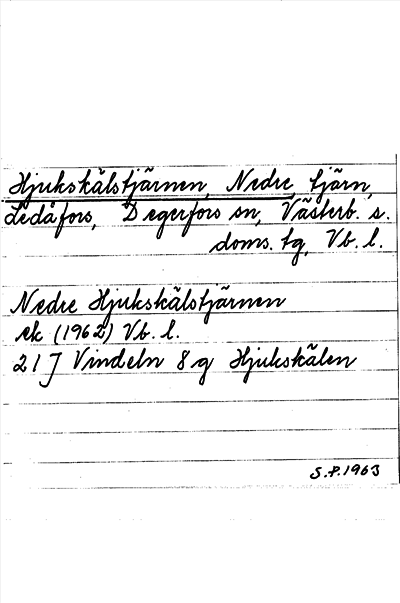 Hjukskälstjärnen, Nedre, tjärn,
Ledåfors, Degerfors sn, Västerb. s.
doms. tg, Vb. l.
Nedre Hjukskälstjärnen
ek (1962) Vb. l.
21 J Vindeln 8 g Hjukskälen
S.P. 1963